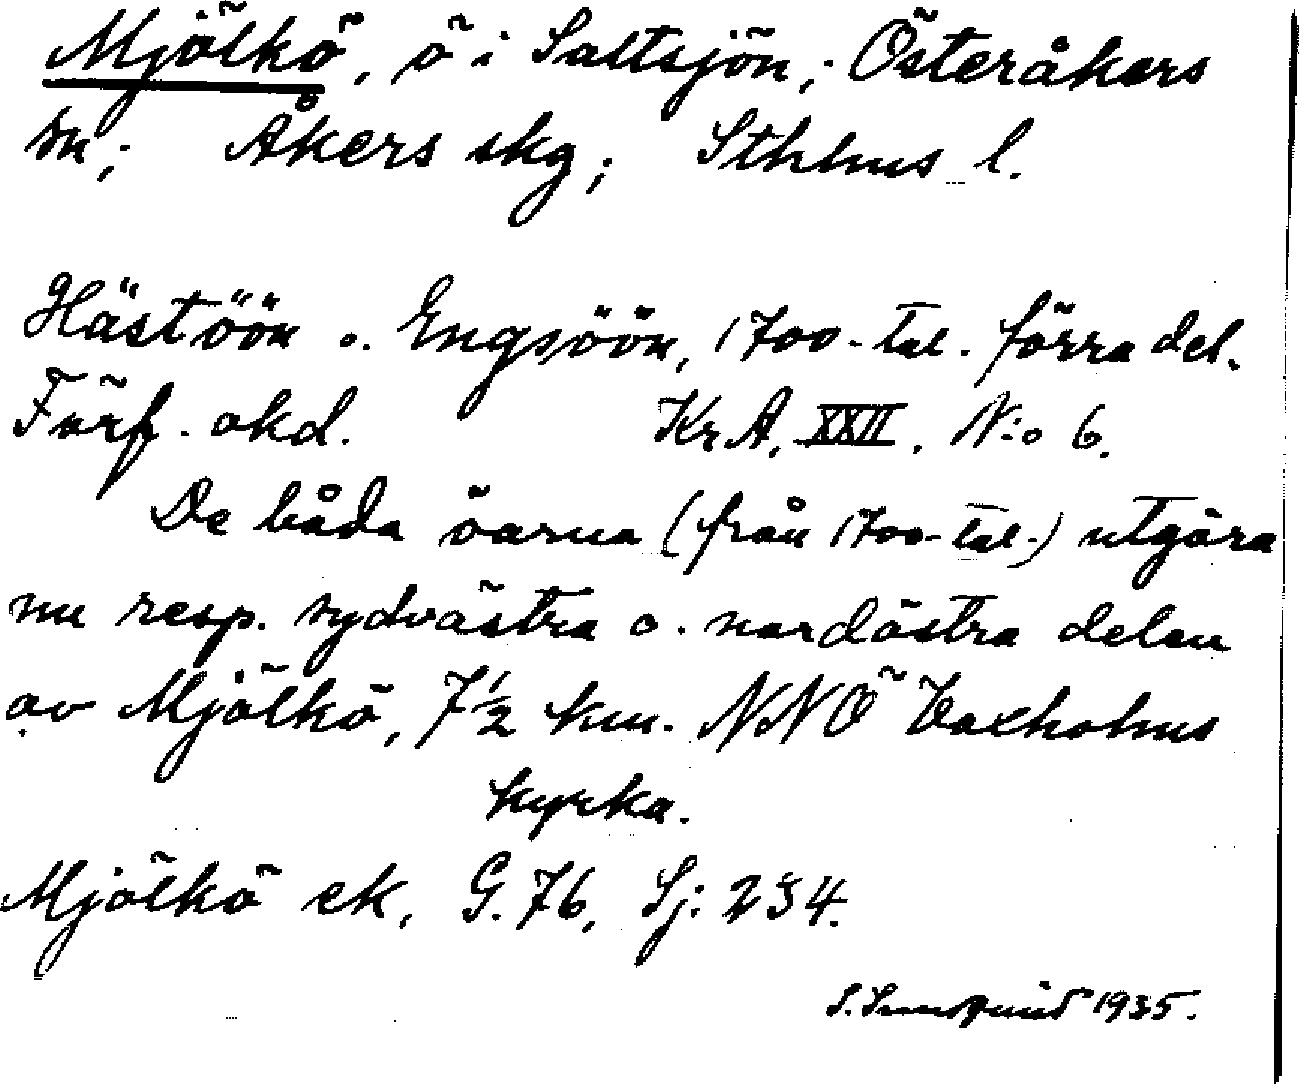 Mjölkö, ö i Saltsjön; Österåkers
sn; Åkers skg; Sthlms l.
Hästöön o. Engsöön, 1700-tal. förra del.
Förf. okd. KrA. XXII. N:o 6.
De båda öarna (från 1700-tal.) utgöra
nu resp. sydvästra o. nordöstra delen
av Mjölkö, 7½ km. NNÖ Vaxholms
kyrka.
Mjölkö ek. G. 76, Sj: 234.
S. 1935.